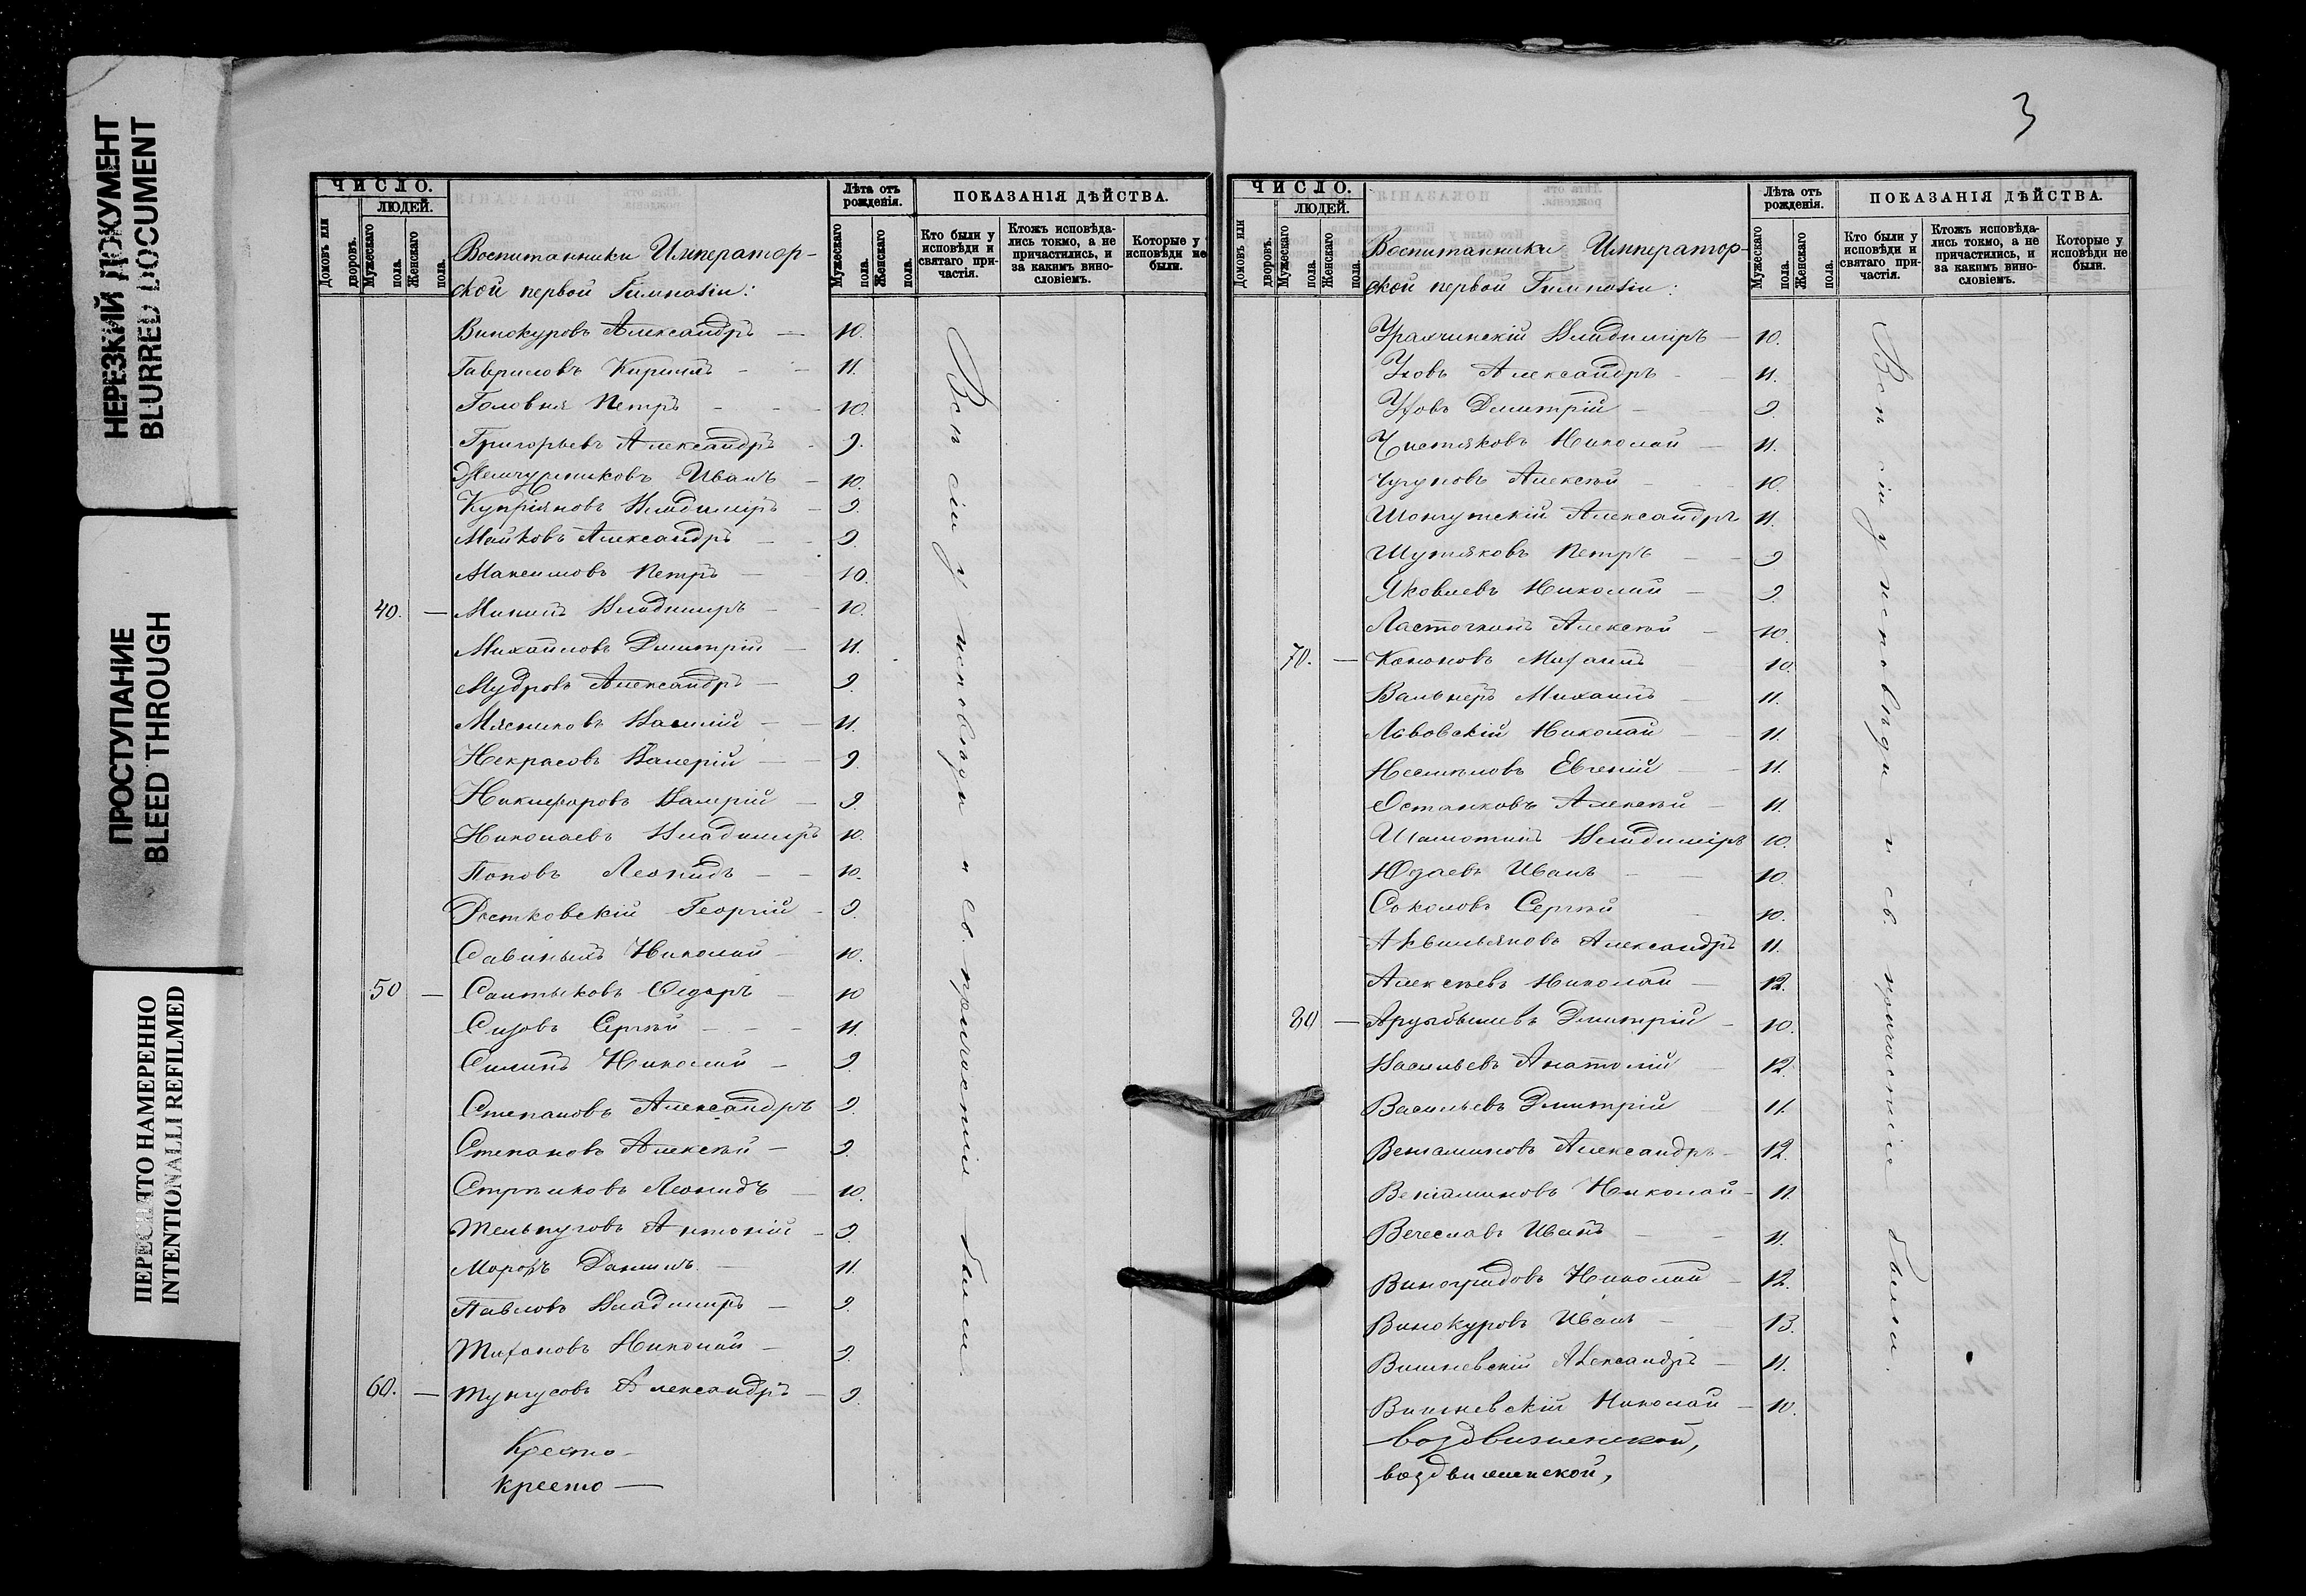 НЕРЕЗКИЙ ДОКУМЕНТ
BLURRED DOCUMENT
ПРОСТУПАНИЕ
BLEED THROUGH
ПЕРЕСНЯТО НАМЕРЕННО
INTENTIONALLI REFILMED
ЧИСЛО.
ЛЮДЕЙ.
Домовъ или дворовъ.
Мужескаго пола.
Женскаго пола.
Воспитанники Император-
ской первой Гимназіи:
Лѣта отъ рожденія.
Мужескаго пола.
Женскаго пола.
ПОКАЗАНІЯ ДѢЙСТВА.
Кто были у исповѣди и святаго причастія.
Ктожъ исповѣдались токмо, а не причастились, и за какимъ винословіемъ.
Которые у исповѣди не были.
Винокуровъ Александръ — 10.
Гавриловъ Кириллъ - - 11.
Головня Петръ - - - 10.
Григорьевъ Александръ - 9.
Жемчужниковъ Иванъ - 10.
Купріяновъ Владиміръ - 9.
Майковъ Александръ - - 9.
Максимовъ Петръ — - 10.
40. — Мининъ Владимиръ - - 10.
Михайловъ Дмитрій — 11.
Мудровъ Александръ — 9.
Мясниковъ Василій - - 11.
Некрасовъ Валерій — - 9.
Никифоровъ Валерій — 9.
Николаевъ Владимиръ 10.
Поповъ Леонидъ - - 10.
Ростковскій Георгій - 9.
Савиныхъ Николай - 10.
50 — Салтыковъ Ѳедоръ - 10
Сизовъ Сергѣй - - - 11.
Силинъ Николай - 9.
Степановъ Александръ 9.
Степановъ Алексѣй - 9.
Стрѣлковъ Леонидъ — 10.
Тельпуговъ Антоній - 9.
Морозъ Даніилъ. — 11.
Павловъ Владимиръ — 9.
Тихановъ Николай - 9.
60. — Тунгусовъ Александръ — 9.
Кресто-
кресто —
Всѣ сіи у исповѣди и св. причастія были.
3
ЧИСЛО.
ЛЮДЕЙ.
Домовъ или дворовъ.
Мужескаго пола.
Женскаго пола.
Воспитанники Император-
ской первой Гимназіи:
Лѣта отъ рожденія.
Мужескаго пола.
Женскаго пола.
ПОКАЗАНІЯ ДѢЙСТВА.
Кто были у исповѣди и святаго причастія.
Ктожъ исповѣдались токмо, а не причастились, и за какимъ винословіемъ.
Которые у исповѣди не были.
Владиміръ — 10.
Александръ - - 11.
Дмитрій - 9.
Чистяковъ Николай — 11.
Чугуновъ Алексѣй - 10.
Александръ 11.
Петръ - - 9
Яковлевъ Николай - 9.
Ласточкинъ Алексѣй - 10.
70. — Кононовъ Михаилъ - 10.
Вальнеръ Михаилъ - 11.
Львовскій Николай - - 11.
Несмѣловъ Евгеній - - 11.
Останковъ Алексѣй - 11.
Шамотинъ Владиміръ 10.
Юдаевъ Иванъ - - 10.
Соколовъ Сергѣй - 10.
Аквильяновъ Александръ 11.
Алексѣевъ Николай — 12.
80 — Арцыбышевъ Дмитрій - 10.
Васильевъ Анатолій - 12.
Васильевъ Дмитрій 11.
Веніаминовъ Александръ - 12.
Веніаминовъ Николай - 11.
Вечеславъ Иванъ - - 11.
Виноградовъ Николай - 12.
Винокуровъ Иванъ - - 13.
Вишневскій Александръ — 11.
Вишневскій Николай - 10.
воздвиженской,
воздвиженской,
Всѣ сіи у исповѣди и св. причастія были.